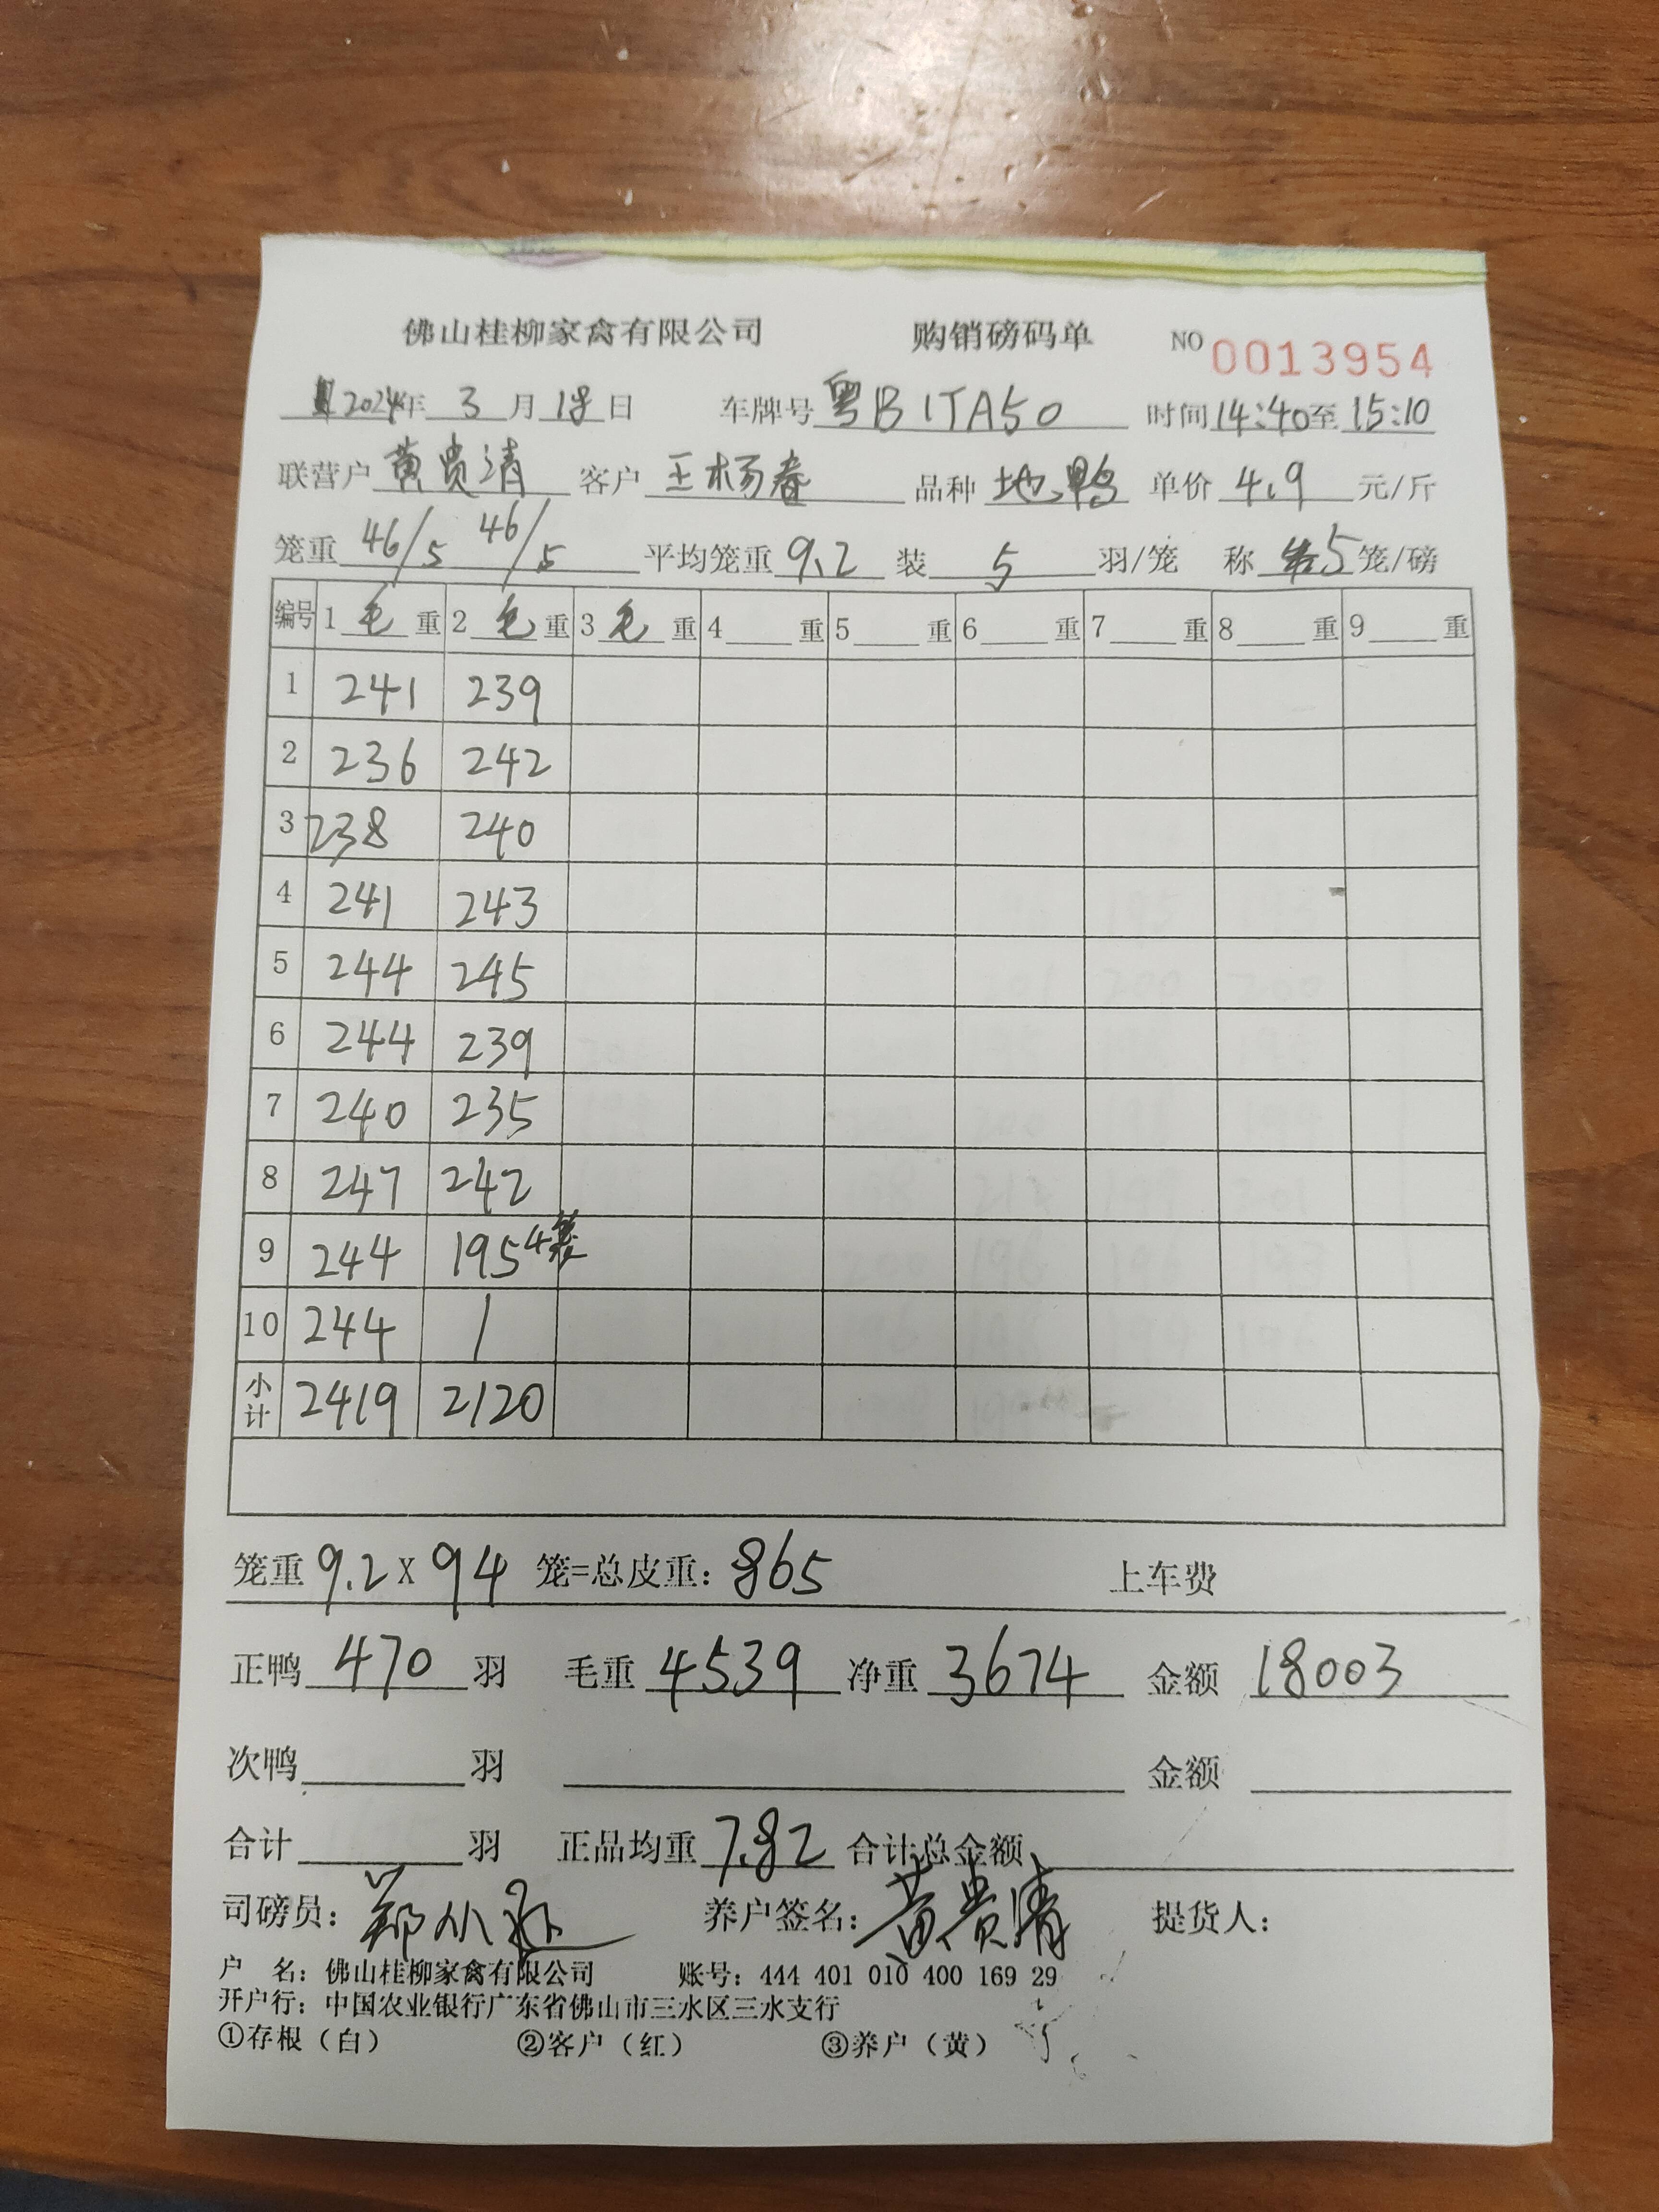 佛山桂柳家禽有限公司 购销磅码单 NO 0013954
2024年 3 月 18 日 车牌号 粤B 1TA50 时间 14:40 至 15:10
联营户 黄贵清 客户 王杨春 品种 地鸭 单价 4.9 元/斤
笼重 46/5 46/5 平均笼重 9.2 装 5 羽/笼 称 5 笼/磅
编号 1 毛 重 2 毛 重 3 毛 重 4 重 5 重 6 重 7 重 8 重 9 重
1 241 239
2 236 242
3 238 240
4 241 243
5 244 245
6 244 239
7 240 235
8 247 242
9 244 195 4笼
10 244 /
小计 2419 2120
笼重 9.2 x 94 笼=总皮重: 865 上车费
正鸭 470 羽 毛重 4539 净重 3674 金额 18003
次鸭 羽 金额
合计 羽 正品均重 7.82 合计总金额
司磅员: 郑 养户签名: 黄贵清 提货人:
户 名: 佛山桂柳家禽有限公司 账号: 444 401 010 400 169 29
开户行: 中国农业银行广东省佛山市三水区三水支行
①存根（白） ②客户（红） ③养户（黄）